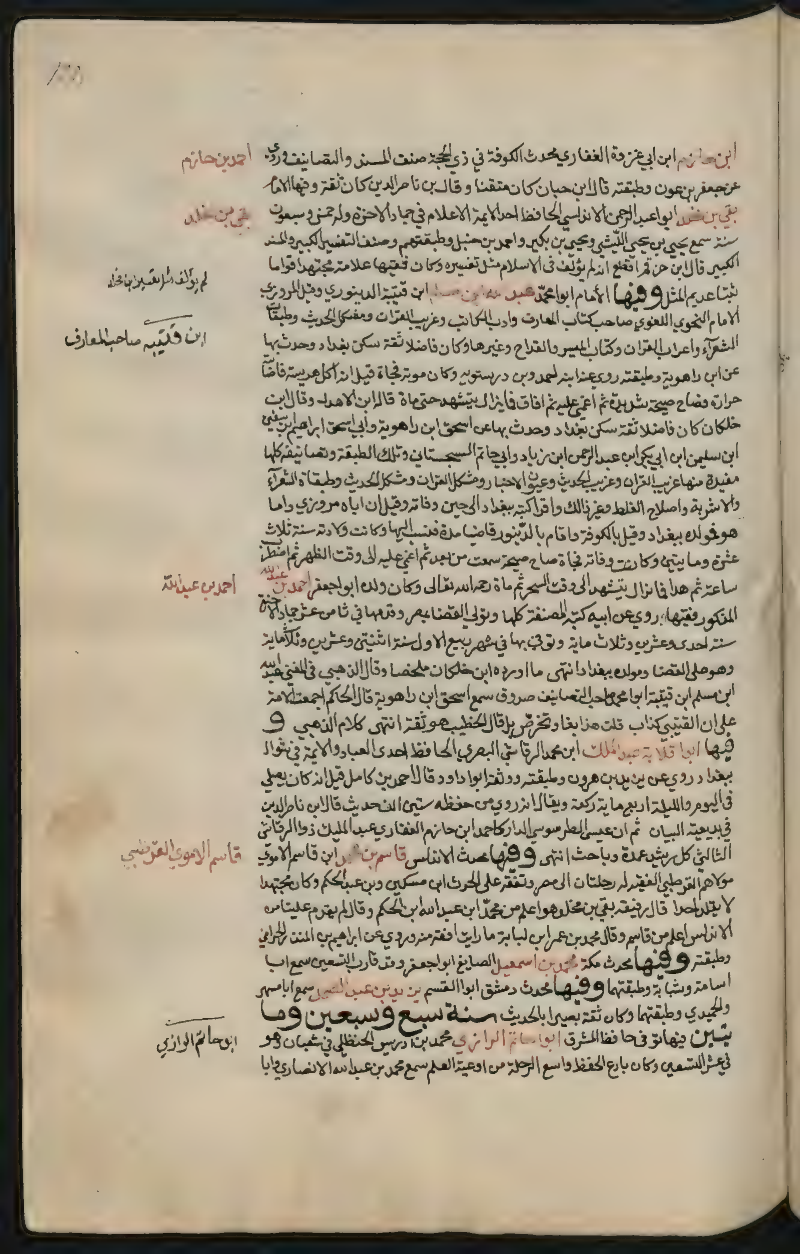 ابن حازم ابن ابي غرزة الغفاري محدث الكوفة في ذي الحجة صنف المسند والتصانيف وروى
عن جعفر بن عون وطبقته قال ابن حبان كان متقنا وقال بن ناصر الدين كان ثقة وفيها الامام
بقي بن مخلد ابو عبد الرحمن الاندلسي الحافظ احد الايمة الاعلام في جماد الاخرة وله خمس وسبعون
سنة سمع يحيى بن يحيى الليثي ويحيى بن بكير واحمد بن حنبل وطبقتهم وصنف التفسير الكبير والمسند
الكبير قال ابن حزم اقطع انه لم يؤلف في الاسلام مثل تفسيره وكان فقيها علامة مجتهدا قواما
ثبتا عديم المثل وفيها الامام ابو محمد عبد الله بن مسلم ابن قتيبة الدينوري وقيل المروزي
الامام النحوي اللغوي صاحب كتاب المعارف وادب الكاتب وغريب القران ومشكل الحديث وطبقات
الشعرآء واعراب القران وكتاب الميسر والقداح وغيرها وكان فاضلا ثقة سكن بغداد وحدث بها
عن ابن راهوية وطبقته روى عنه ابنه احمد وبن درستويه وكان موته فجاة قيل انه اكل هريسة فاصا
حرارة فصاح صيحة شديدة ثم اغمي عليه ثم افاق فما زال يتشهد حتى ماة قاله ابن الاهدل وقال ابن
خلكان كان فاضلا ثقة سكن بغداد وحدث بها عن اسحق ابن راهوية وابي اسحق ابراهيم بن سفين
ابن سليمن ابن ابي بكر ابن عبد الرحمن ابن زياد وابي حاتم السجستاني وتلك الطبقة وتصانيفه كلها
مفيدة منها غريب القران وغريب الحديث وعيون الاخبار ومشكل القران ومشكل الحديث وطبقاة الشعرآء
والاشربة واصلاح الغلط وغير ذالك واقرا كتبه ببغداد الى حين وفاته وقيل ان اباه مروزي واما
هو فمولده ببغداد وقيل بالكوفة واقام بالدينور قاضيا مدة فنسب اليها وكانت ولادته سنة ثلاث
عشرة وما يتين وكانت وفاته فجاة صاح صيحة سمعت من بعد ثم اغمي عليه الى وقت الظهر ثم اضطرب
ساعة ثم هدا فما زال يتشهد الى وقت السحر ثم ماة رحمه الله تعالى وكان ولده ابو جعفر احمد بن عبد الله
المذكور فقيها روى عن ابيه كتبه المصنفة كلها وتولى القضا بمصر وقدمها في ثامن عشر جماد الاخرة
سنة احدى وعشرين وثلاث ماية وتوفي بها في شهر ربيع الاول سنة اثنتين وعشرين وثلثماية
وهو على القضا ومولده ببغداد انتهى ما اورده ابن خلكان ملخصا وقال الذهبي في المغني عبد الله
ابن مسلم ابن قتيبة ابو محمد صاحب التصانيف صدوق سمع اسحق ابن راهوية قال الحاكم اجمعت الامة
على ان القتيبي كذاب قلت هذا بغي وتخرص بل قال الخطيب هو ثقة انتهى كلام الذهبي و
فيها ابو قلابة عبد الملك ابن محمد الرقاشي البصري الحافظ احدى العباد والايمة في شوال
ببغداد روى عن يزيد بن هرون وطبقته ووثقه ابو داود وقال احمد بن كامل قيل انه كان يصلي
في اليوم والليلة اربع ماية ركعة ويقال انه روى من حفظه ستين الف حديث قال ابن ناصر الدين
في بديعية البيان ثم ابن عيسى الطرسوسي الدار كاحمد ابن حازم الغفاري عبد المليك ذو الرقاشي
الثالث كل بريد عمدة وباحث انتهى وفيها محدث الاندلس قاسم بن محمد ابن قاسم الاموي
مولاهم القرطبي الفقيه له رحلتان الى مصر وتفقه على الحرث ابن مسكين وبن عبد الحكم وكان مجتهدا
لا يقلد احدا قال رفيقه بقي بن مخلد هو اعلم من محمد ابن عبد الله ابن الحكم وقال لم يقدم علينا من
الاندلس اعلم من قاسم وقال محمد بن عمر ابن لبابة ما رايت افقه منه وروى عن ابراهيم بن المنذر الحزامي
وطبقته وفيها محدث مكة محمد بن اسمعيل الصايغ ابو جعفر وقد قارب التسعين سمع ابا
اسامة وشبابة وطبقتهما وفيها محدث دمشق ابو القسم يزيد بن عبد الصمد سمع ابا مسهر
والحميدي وطبقتهما وكان ثقة بصيرا بالحديث سنة سبع وسبعين وما
يتين فيها توفي حافظ المشرق ابو حاتم الرازي محمد بن ادريس الحنظلي في شعبان وهو
في عشر التسعين وكان بارع الحفظ واسع الرحلة من اوعية العلم سمع محمد بن عبد الله الانصاري وابا
احمد بن حازم
بقي بن مخلد
لم يولف مثل تفسير بن مخلد
ابن قتيبه صاحب المعارف
احمد بن عبد الله
قاسم الاموي القرطبي
ابو حاتم الرازي